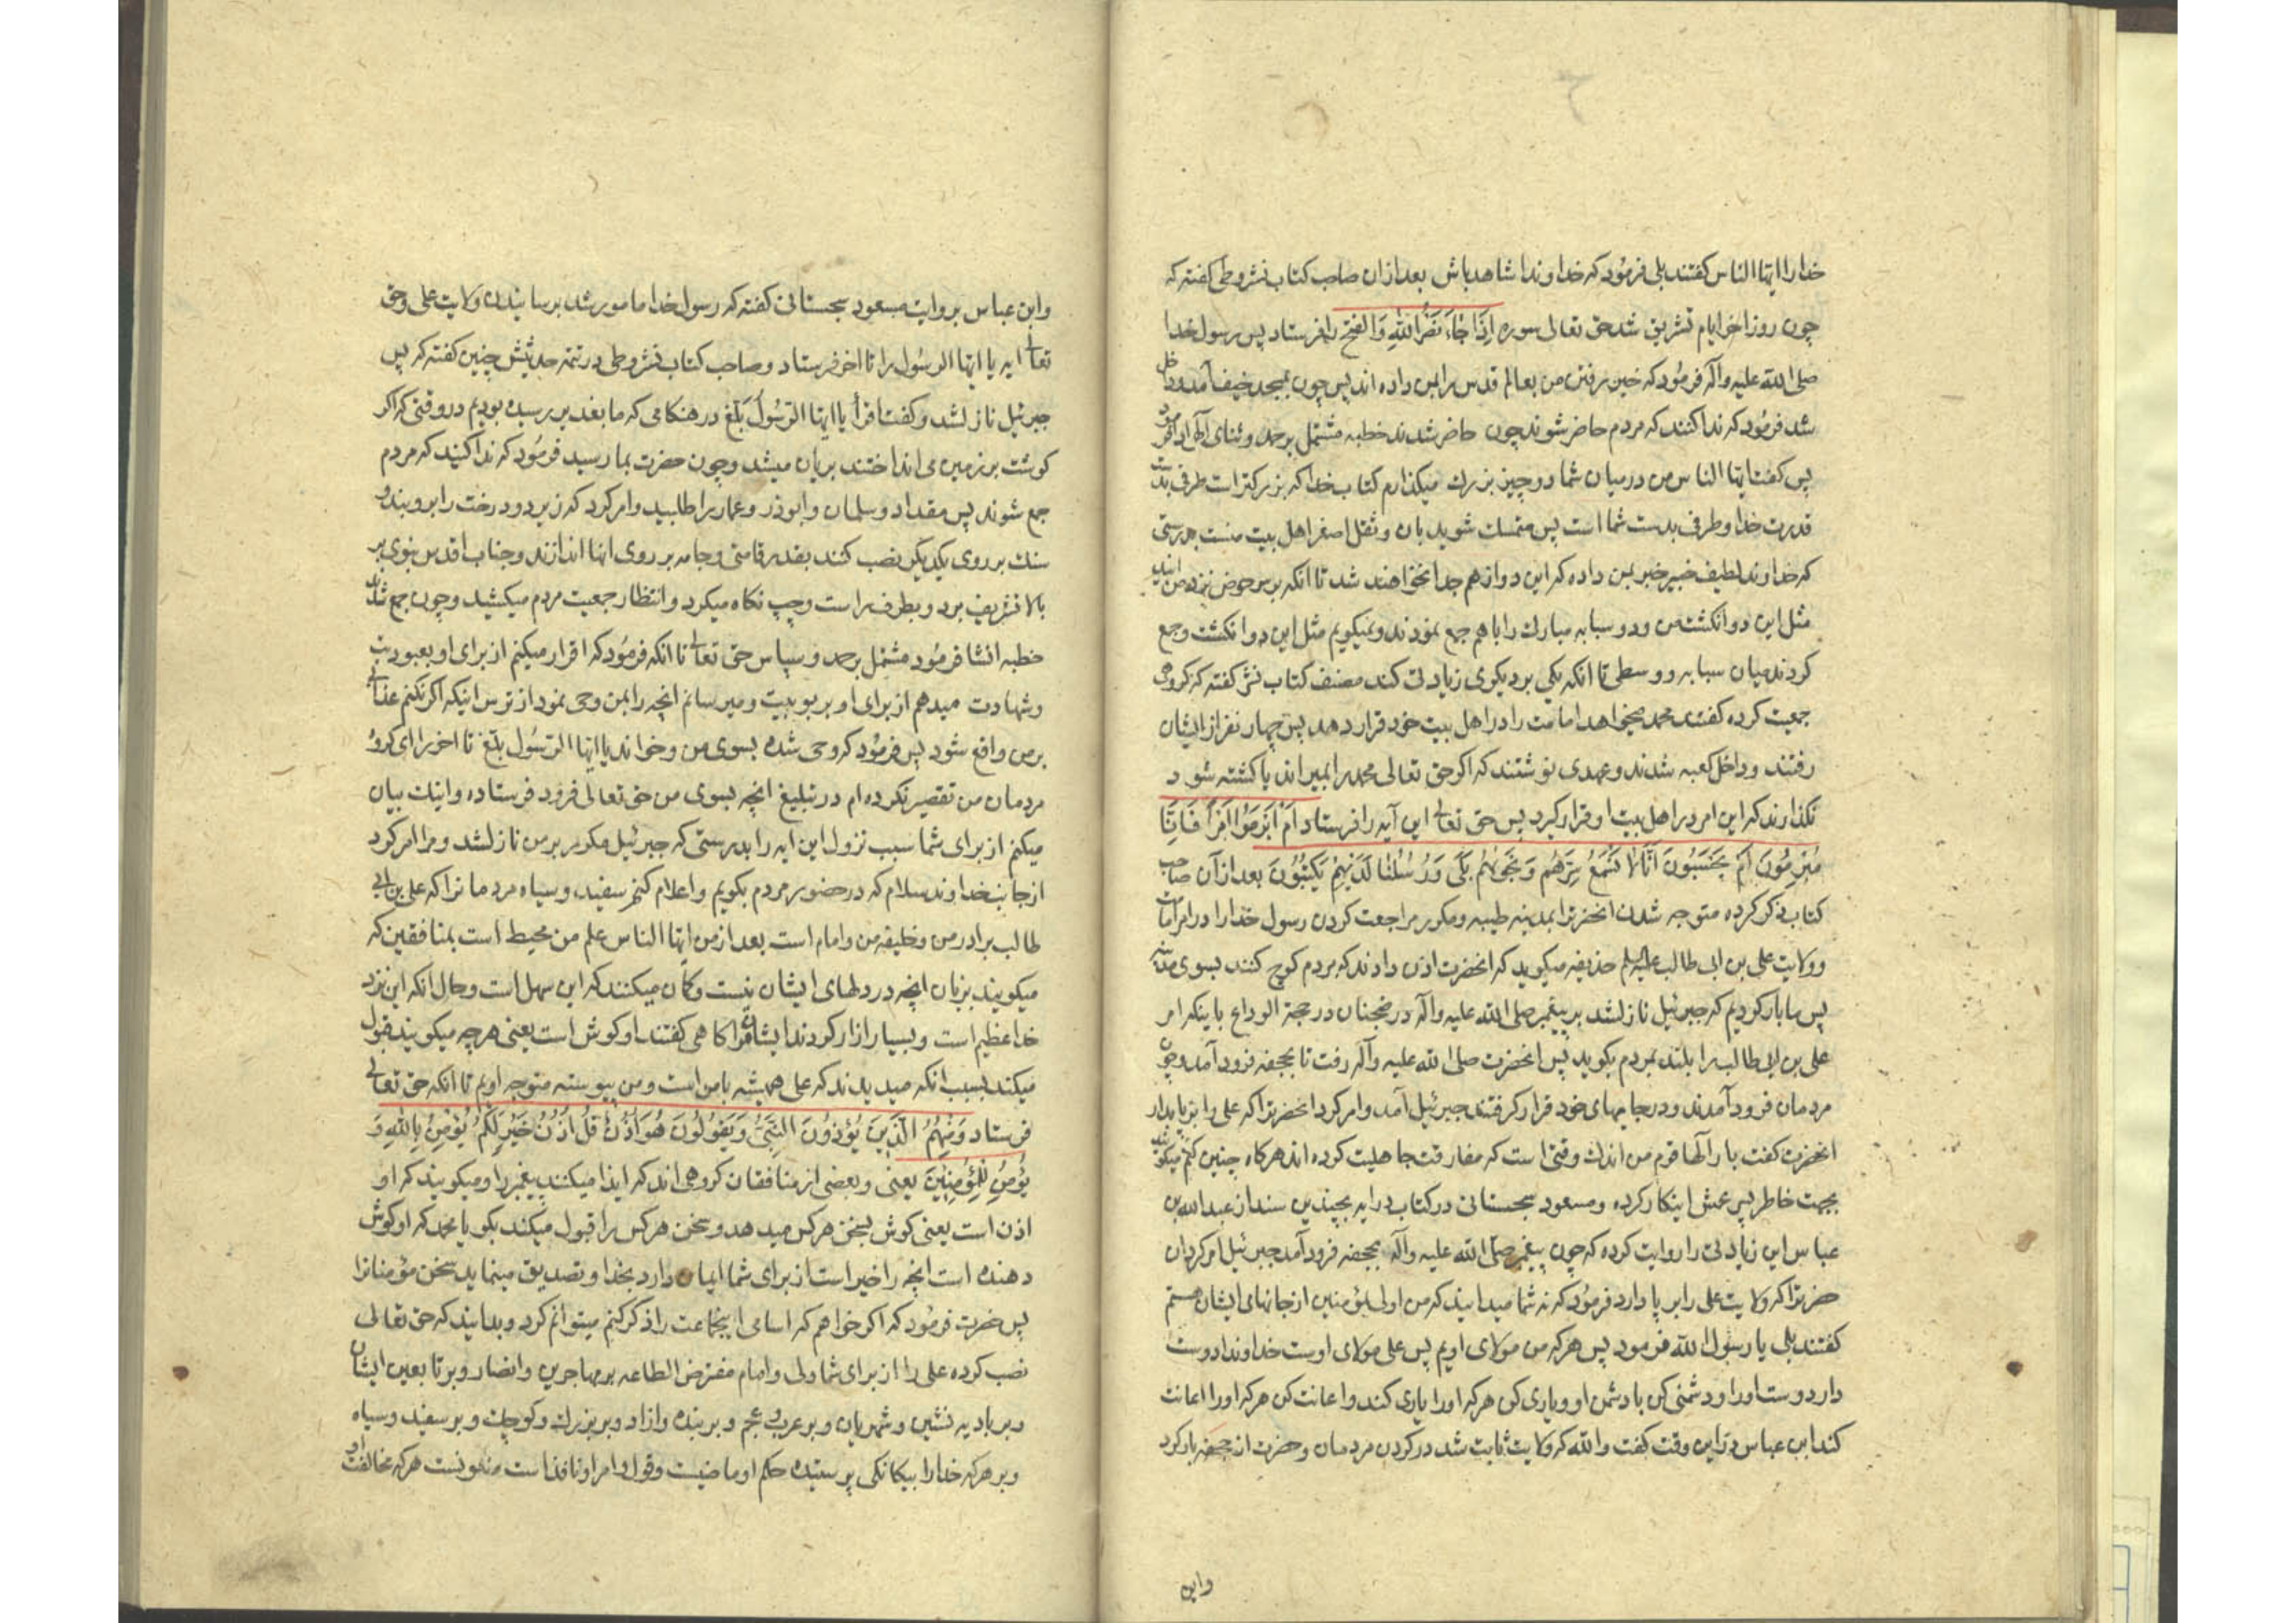 خدا را ایها الناس کفتند بلی فرمود که خداوندا شاهد باش بعد از ان صاحب کتاب نشر و طی کفته که
چون روز اخر ایام تشریق شد حق تعالی سوره اِذَا جَاءَ نَصْرُ اللهِ وَالْفَتْح را فرستاد پس رسول خدا
صلی الله علیه وآله فرمود که خبر رفتن من بعالم قدس را بمن داده اند پس چون بمسجد خیف آمد و داخل
شد فرمود که ندا کنند که مردم حاضر شوند چون حاضر شدند خطبه مشتمل بر حمد و ثنای الهی ادا فرمود
پس کفت ایها الناس من در میان شما دو چیز بزرك میکذارم کتاب خدا که بزرکتر است طرفی بدست
قدرت خدا و طرفی بدست شما است پس متمسك شوید بان و ثقل اصغر اهل بیت منست بدرستی
که خداوند لطیف خبیر خبر بمن داده که این دو از هم جدا نخواهند شد تا انکه بر سر حوض نزد من ایند
مثل این دو انکشت من و دو سبابه مبارك را با هم جمع نمودند و نمیکویم مثل این دو انکشت و جمع
کردند میان سبابه و وسطی تا انکه یکی بر دیکری زیادتی کند مصنف کتاب نشر کفته که کروهی
جمعیت کرده کفتند محمد میخواهد امامت را در اهل بیت خود قرار دهد پس چهار نفر از ایشان
رفتند و داخل کعبه شدند و عهدی نوشتند که اکر حق تعالی محمد را بمیراند یا کشته شود
نکذارند که این امر در اهل بیت او قرار کیرد پس حق تعالی این آیه را فرستاد اَمْ اَبْرَمُوا اَمْراً فَاِنَّا
مُبْرِمُونَ اَمْ یَحْسَبُونَ اَنَّا لا نَسْمَعُ سِرَّهُم وَنَجْوٰیهُمْ بَلٰی وَرُسُلُنٰا لَدَیْهِمْ یَکْتُبُونَ بعد از آن صاحب
کتاب ذکر کرده متوجه شدن انحضرترا بمدینه طیبه و مکرر مراجعت کردن رسول خدا را در امر امامت
و ولایت علی بن ابی طالب علیه السلم حذیفه میکوید که انحضرت اذن دادند که مردم کوچ کنند بسوی مدینه
پس ما بار کردیم که جبرئیل نازل شد بر پیغمبر صلی الله علیه وآله در ضجنان در حجة الوداع باینکه امر
علی بن ابی طالب را بلند بمردم بکوید پس انحضرت صلی الله علیه وآله رفت تا بجحفه فرود آمد و چون
مردمان فرود آمدند و در جایهای خود قرار کرفتند جبرئیل آمد و امر کرد انحضرترا که علی را برپا بدارد
انحضرت کفت بار الها قوم من اندك وقتی است که مفارقت جاهلیت کرده اند هرکاه چنین کنم میکویند
بجهت خاطر پسر عمش اینکار کرده و مسعود سجستانی در کتاب درایه بچندین سند از عبدالله بن
عباس این زیادتی را روایت کرده که چون پیغمبر صلی الله علیه وآله بجحفه فرود آمد جبرئیل امر کرد ان
حضرترا که ولایت علی را برپا دارد فرمود که نه شما میدانید که من اولی بمؤمنین از جانهای ایشان هستم
کفتند بلی یا رسول الله فرمود پس هر که من مولای اویم پس علی مولای اوست خداوندا دوست
دار دوست او را و دشمنی کن با دشمن او و یاری کن هر که او را یاری کند و اعانت کن هر که او را اعانت
کند ابن عباس در این وقت کفت والله که ولایت ثابت شد در کردن مردمان و حضرت از جحفه بار کرد
واین
وابن عباس بروایت مسعود سجستانی کفته که رسول خدا مامور شد برسانیدن ولایت علی و حق
تعالی ایه یا ایها الرسول را تا اخر فرستاد و صاحب کتاب نشر و طی در تتمه حدیثش چنین کفته که پس
جبرئیل نازلشد و کفت اقرأ یا ایها الرسول بلغ در هنکامی که ما بغدیر رسیده بودیم در وقتی که اکر
کوشت بر زمین می انداختند بریان میشد و چون حضرت بما رسید فرمود که ندا کنید که مردم
جمع شوند پس مقداد و سلمان و ابوذر و عمار را طلبید و امر کرد که زیر دو درخت را بروبند و
سنك بر روی یکدیکر نصب کنند بقدر قامتی و جامه بر روی انها اندازند و جناب اقدس نبوی بر
بالا تشریف برد و بطرف راست و چپ نکاه میکرد و انتظار جمعیت مردم میکشید و چون جمع شدند
خطبه انشا فرمود مشتمل بر حمد و سپاس حق تعالی تا انکه فرمود که اقرار میکنم از برای او بعبودیت
و شهادت میدهم از برای او بربوبیت و میرسانم انچه را بمن وحی نمود از ترس اینکه اکر نکنم عذابی
بر من واقع شود پس فرمود که وحی شده بسوی من و خواند یا ایها الرسول بلغ تا اخر را ای کروه
مردمان من تقصیر نکرده ام در تبلیغ انچه بسوی من حق تعالی فرود فرستاده و اینك بیان
میکنم از برای شما سبب نزول این ایه را بدرستی که جبرئیل مکرر بر من نازلشد و مرا امر کرد
از جانب خداوند سلام که در حضور مردم بکویم و اعلام کنم سفید و سیاه مردمانرا که علی بن ابی
طالب برادر من و خلیفه من و امام است بعد از من ایها الناس علم من محیط است بمنافقین که
میکویند بزبان انچه در دلهای ایشان نیست و کمان میکنند که این سهل است و حال انکه این نزد
خدا عظیم است و بسیار ازار کردند ایشان مرا کاهی کفتند او کوش است یعنی هر چه میکویند قبول
میکند بسبب انکه میدیدند که علی همیشه با من است و من پیوسته متوجه اویم تا انکه حق تعالی
فرستاد وَمِنْهُمُ الَّذینَ یُؤْذُونَ النَّبِیَّ وَیَقُولُونَ هُوَ اُذُنٌ قُلْ اُذُنُ خَیْرٍ لَکُمْ یُؤْمِنُ بِاللهِ وَ
یُؤْمِنُ لِلْمُؤْمِنینَ یعنی و بعضی از منافقان کروهی اند که ایذا میکنند پیغمبر را و میکویند که او
اذن است یعنی کوش بسخن هرکس میدهد و سخن هرکس را قبول میکند بکو یا محمد که او کوش
دهنده است انچه را خیر است از برای شما ایمان دارد بخدا و تصدیق مینماید سخن مؤمنانرا
پس حضرت فرمود که اکر خواهم که اسامی اینجماعت را ذکر کنم میتوانم کرد و بدانید که حق تعالی
نصب کرده علی را از برای شما ولی و امام مفترض الطاعه بر مهاجرین و انصار و بر تابعین ایشان
و بر بادیه نشین و شهریان و بر عرب و عجم و بر بنده و ازاد و بر بزرك و کوچك و بر سفید و سیاه
و بر هر که خدا را بیکانکی پرستیده حکم او ماضیست و قول و امر او نافذ است ملعونست هر که مخالفت او